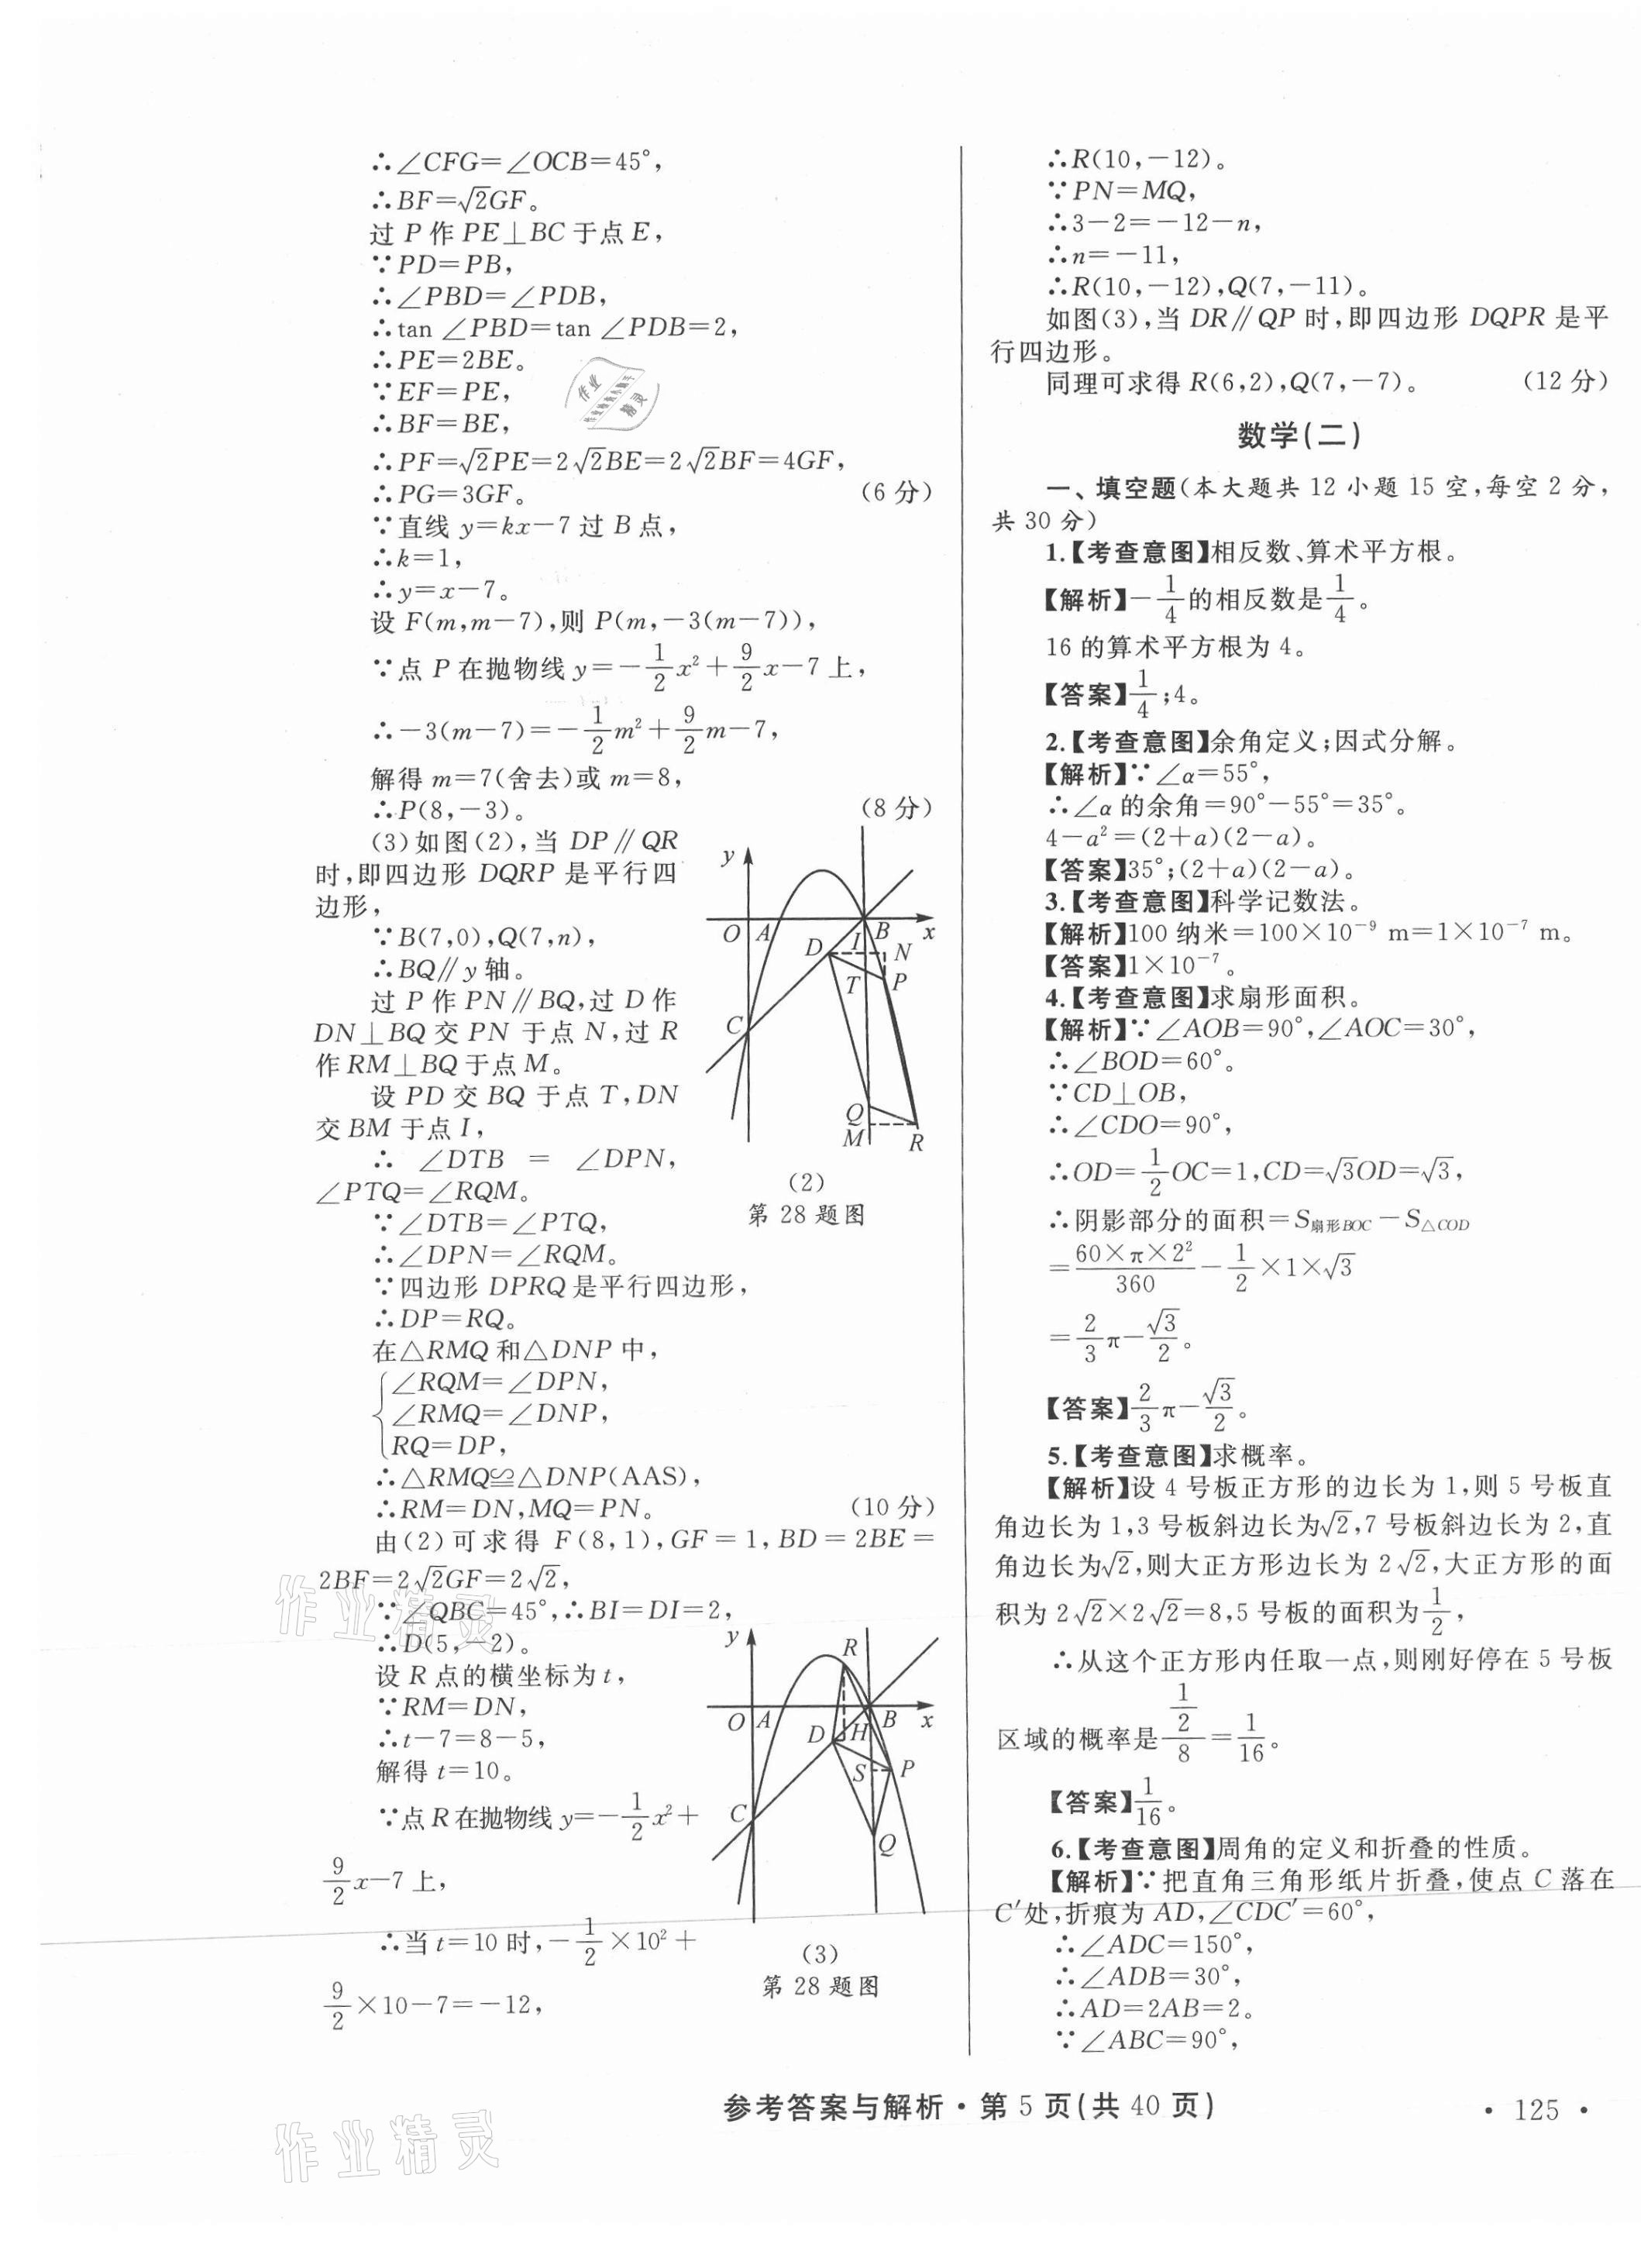 ∴∠CFG=∠OCB=45°,
∴BF=√2GF。
过 P 作 PE⊥BC 于点 E,
∵PD=PB,
∴∠PBD=∠PDB,
∴tan ∠PBD=tan ∠PDB=2,
∴PE=2BE。
∵EF=PE,
∴BF=BE,
∴PF=√2PE=2√2BE=2√2BF=4GF,
∴PG=3GF。 (6 分)
∵直线 y=kx-7 过 B 点,
∴k=1,
∴y=x-7。
设 F(m,m-7),则 P(m,-3(m-7)),
∵点 P 在抛物线 y=-1/2x²+9/2x-7 上,
∴-3(m-7)=-1/2m²+9/2m-7,
解得 m=7(舍去)或 m=8,
∴P(8,-3)。 (8 分)
(3)如图(2),当 DP∥QR
时,即四边形 DQRP 是平行四
边形,
∵B(7,0),Q(7,n),
∴BQ∥y 轴。
过 P 作 PN∥BQ,过 D 作
DN⊥BQ 交 PN 于点 N,过 R
作 RM⊥BQ 于点 M。
设 PD 交 BQ 于点 T,DN
交 BM 于点 I,
∴ ∠DTB = ∠DPN,
∠PTQ=∠RQM。
∵∠DTB=∠PTQ,
∴∠DPN=∠RQM。
∵四边形 DPRQ 是平行四边形,
∴DP=RQ。
在△RMQ 和△DNP 中,
∠RQM=∠DPN,
∠RMQ=∠DNP,
RQ=DP,
∴△RMQ≌△DNP(AAS),
∴RM=DN,MQ=PN。 (10 分)
由(2)可求得 F(8,1),GF=1,BD=2BE=
2BF=2√2GF=2√2,
∵∠QBC=45°,∴BI=DI=2,
∴D(5,-2)。
设 R 点的横坐标为 t,
∵RM=DN,
∴t-7=8-5,
解得 t=10。
∵点 R 在抛物线 y=-1/2x²+
9/2x-7 上,
∴当 t=10 时,-1/2×10²+
9/2×10-7=-12,
y
O A I B x
D N
T P
C
Q
M R
(2)
第 28 题图
y
R
O A B x
D H
S P
C
Q
(3)
第 28 题图
∴R(10,-12)。
∵PN=MQ,
∴3-2=-12-n,
∴n=-11,
∴R(10,-12),Q(7,-11)。
如图(3),当 DR∥QP 时,即四边形 DQPR 是平
行四边形。
同理可求得 R(6,2),Q(7,-7)。 (12 分)
数学(二)
一、填空题(本大题共 12 小题 15 空,每空 2 分,
共 30 分)
1.【考查意图】相反数、算术平方根。
【解析】-1/4的相反数是1/4。
16 的算术平方根为 4。
【答案】1/4;4。
2.【考查意图】余角定义;因式分解。
【解析】∵∠α=55°,
∴∠α 的余角=90°-55°=35°。
4-a²=(2+a)(2-a)。
【答案】35°;(2+a)(2-a)。
3.【考查意图】科学记数法。
【解析】100 纳米=100×10⁻⁹ m=1×10⁻⁷ m。
【答案】1×10⁻⁷。
4.【考查意图】求扇形面积。
【解析】∵∠AOB=90°,∠AOC=30°,
∴∠BOD=60°。
∵CD⊥OB,
∴∠CDO=90°,
∴OD=1/2OC=1,CD=√3OD=√3,
∴阴影部分的面积=S扇形BOC-S△COD
=60×π×2²/360-1/2×1×√3
=2/3π-√3/2。
【答案】2/3π-√3/2。
5.【考查意图】求概率。
【解析】设 4 号板正方形的边长为 1,则 5 号板直
角边长为 1,3 号板斜边长为√2,7 号板斜边长为 2,直
角边长为√2,则大正方形边长为 2√2,大正方形的面
积为 2√2×2√2=8,5 号板的面积为1/2,
∴从这个正方形内任取一点,则刚好停在 5 号板
区域的概率是(1/2)/8=1/16。
【答案】1/16。
6.【考查意图】周角的定义和折叠的性质。
【解析】∵把直角三角形纸片折叠,使点 C 落在
C′处,折痕为 AD,∠CDC′=60°,
∴∠ADC=150°,
∴∠ADB=30°,
∴AD=2AB=2。
∵∠ABC=90°,
参考答案与解析·第 5 页(共 40 页)
·125·
作业精灵
作业精灵